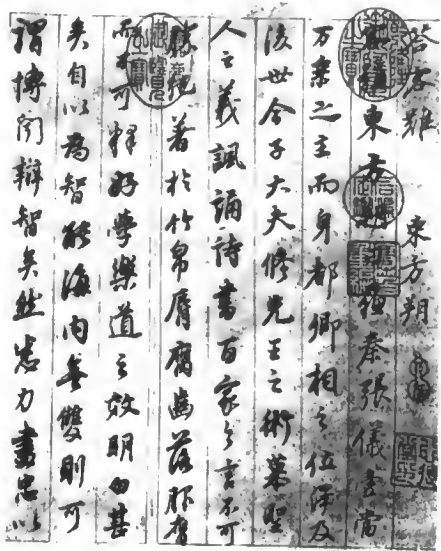 答客難 東方朔
東方朔秦張儀壹當
万乘之主而身都卿相之位澤及
後世今子大夫修先王之術慕聖
人之義諷誦詩書百家之言不可
勝記著於竹帛脣腐齒落服膺
而不可釋好學樂道之效明白甚
矣自以為智能海內無雙則可
謂博聞辯智矣然悉力盡忠以